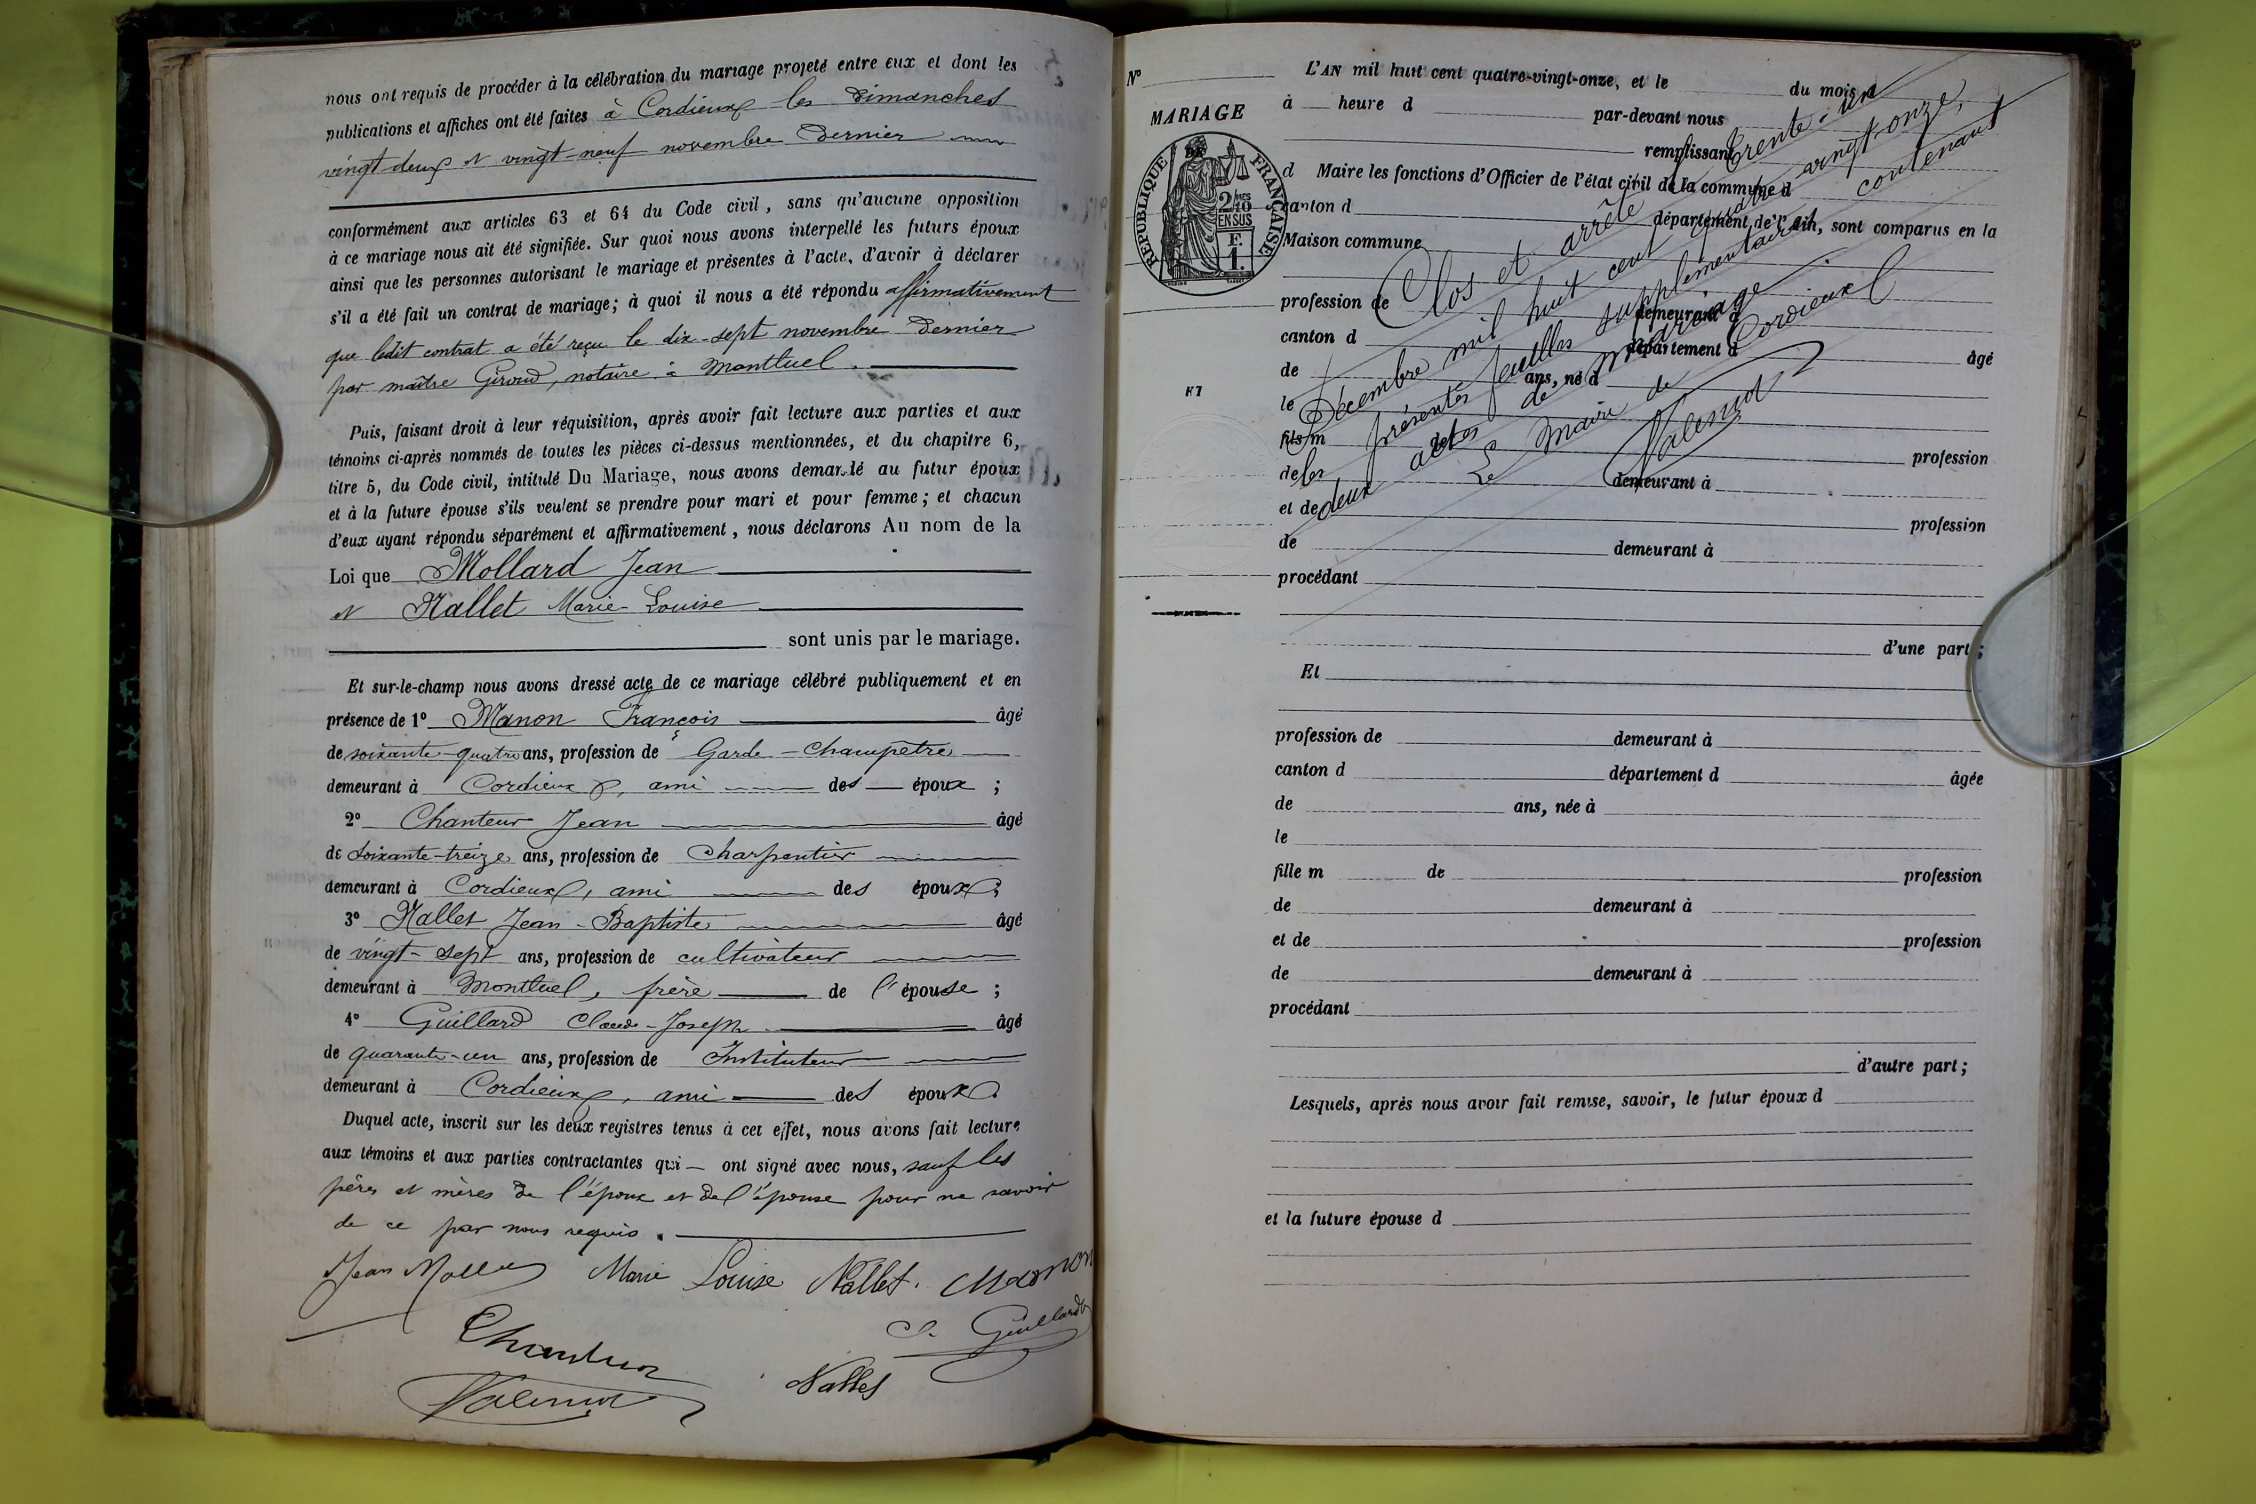 nous ont requis de procéder à la célébration du mariage projeté entre eux et dont les
publications et affiches ont été faites à Cordieux les Dimanches
vingt deux et vingt-neuf novembre Dernier
conformément aux articles 63 et 64 du Code civil, sans qu'aucune opposition
à ce mariage nous ait été signifiée. Sur quoi nous avons interpellé les futurs époux
ainsi que les personnes autorisant le mariage et présentes à l'acte, d'avoir à déclarer
s'il a été fait un contrat de mariage; à quoi il nous a été répondu affirmativement
que ledit contrat a été reçu le dix-sept novembre Dernier
par maître Giroud, notaire à Montluel.
Puis, faisant droit à leur réquisition, après avoir fait lecture aux parties et aux
témoins ci-après nommés de toutes les pièces ci-dessus mentionnées, et du chapitre 6,
titre 5, du Code civil, intitulé Du Mariage, nous avons demandé au futur époux
et à la future épouse s'ils veulent se prendre pour mari et pour femme; et chacun
d'eux ayant répondu séparément et affirmativement, nous déclarons Au nom de la
Loi que Mollard Jean
et Nallet Marie-Louise
sont unis par le mariage.
Et sur-le-champ nous avons dressé acte de ce mariage célébré publiquement et en
présence de 1° Manon François âgé
de soixante-quatre ans, profession de Garde-Champetre
demeurant à Cordieux, ami des époux ;
2° Chanteur Jean âgé
de soixante-treize ans, profession de Charpentier
demeurant à Cordieux, ami des époux ;
3° Nallet Jean-Baptiste âgé
de vingt-sept ans, profession de cultivateur
demeurant à Montluel, frère de l'épouse ;
4° Guillard Claude-Joseph âgé
de quarante-un ans, profession de Instituteur
demeurant à Cordieux, ami des époux.
Duquel acte, inscrit sur les deux registres tenus à cet effet, nous avons fait lecture
aux témoins et aux parties contractantes qui ont signé avec nous, sauf les
pères et mères de l'époux et de l'épouse pour ne savoir
de ce par nous requis.
Jean Mollard Marie Louise Nallet. Manon
Chanteur C. Guillard
Valensot Nallet
N°
MARIAGE
RÉPUBLIQUE FRANÇAISE
2/10 EN SUS
F.
1.
87
L'AN mil huit cent quatre-vingt-onze, et le du mois d
à heure d par-devant nous
remplissant
d Maire les fonctions d'Officier de l'état civil de la commune d
canton d département de l'Ain, sont comparus en la
Maison commune
profession de demeurant à
canton d département d âgé
de ans, né à
le
fils m de
de profession
demeurant à
et de profession
de demeurant à
procédant
d'une part ;
Clos et arrêté le trente-un
Décembre mil huit cent quatre vingt-onze,
les présentes feuilles supplémentaires contenant
deux actes de mariage
Le Maire de Cordieux
Valensot
Et
profession de demeurant à
canton d département d âgée
de ans, née à
le
fille m de profession
de demeurant à
et de profession
de demeurant à
procédant
d'autre part ;
Lesquels, après nous avoir fait remise, savoir, le futur époux d
et la future épouse d